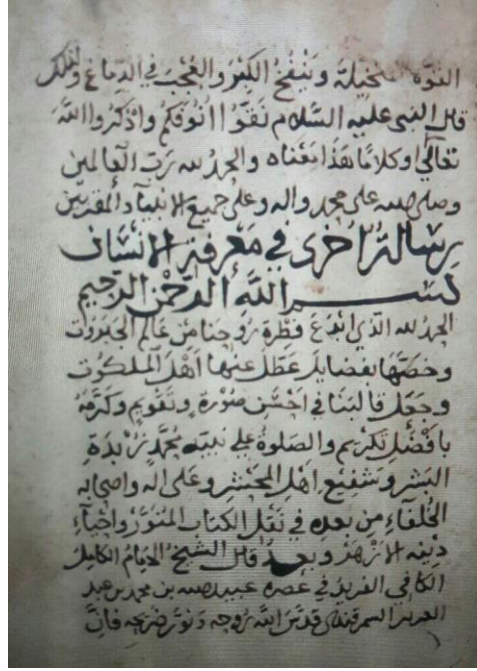 القوة المتخيلة وينفخ الكبر والعجب في الدماغ ولذلك
قال النبي عليه السلام نقوا انوفكم واذكروا الله
تعالى او كلاما هذا معناه والحمد لله رب العالمين
وصلى الله على محمد واله وعلى جميع الانبياء والمقربين
رسالة اخرى في معرفة الانسان
بسم الله الرحمن الرحيم
الحمد لله الذي ابدع فطرة روحنا من عالم الجبروت
وخصها بفضايل عطل عنها اهل الملكوت
وجعل قالبنا في احسن صورة وتقويم وكرمه
بافضل تكريم والصلوة على نبيه محمد زبدة
البشر وشفيع اهل المحشر وعلى اله واصحابه
الخلفاء من بعده في نقل الكتاب المنور واحياء
دينه الازهر وبعد قال الشيخ الامام الكامل
الكافي الفريد في عصره عبيد الله بن محمد بن عبد
العزيز السمرقندي قدس الله روحه ونور ضريحه فان